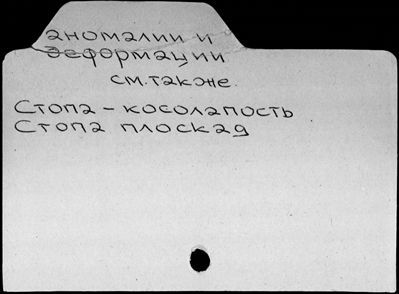 аномалии и
деформации
см. также
Стопа - косолапость
Стопа плоская